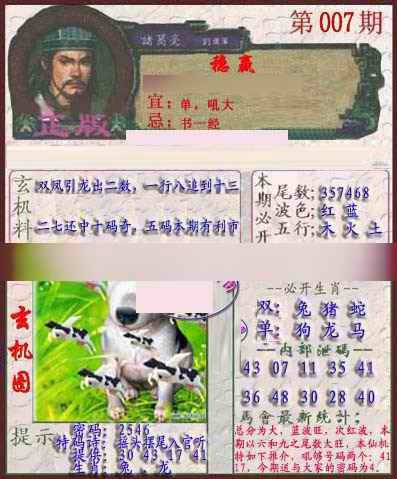 第007期
諸葛亮
稳赢
宜：单，吼大
忌：书一经
正版
玄机料
双凤引龙出二数，一行八追到十三
二七还中十码奇，五码本期有利市
本期必开
尾数:357468
波色:红 蓝
五行:木 火 土
玄机图
必开生肖
双: 兔 猪 蛇
单: 狗 龙 马
内部泄码
43 07 11 35 41
36 48 30 28 40
馬會最新统计:
总分为大，蓝波旺，次红波，本
期以六和九之尾数大旺，本仙机
特如下推介，吼够号码两个：41
17，今期送与大家的密码为4.
提示
密码: 2546
特码诗: 摇头摆尾入官听
提供: 30 43 17 41
生肖: 兔，龙